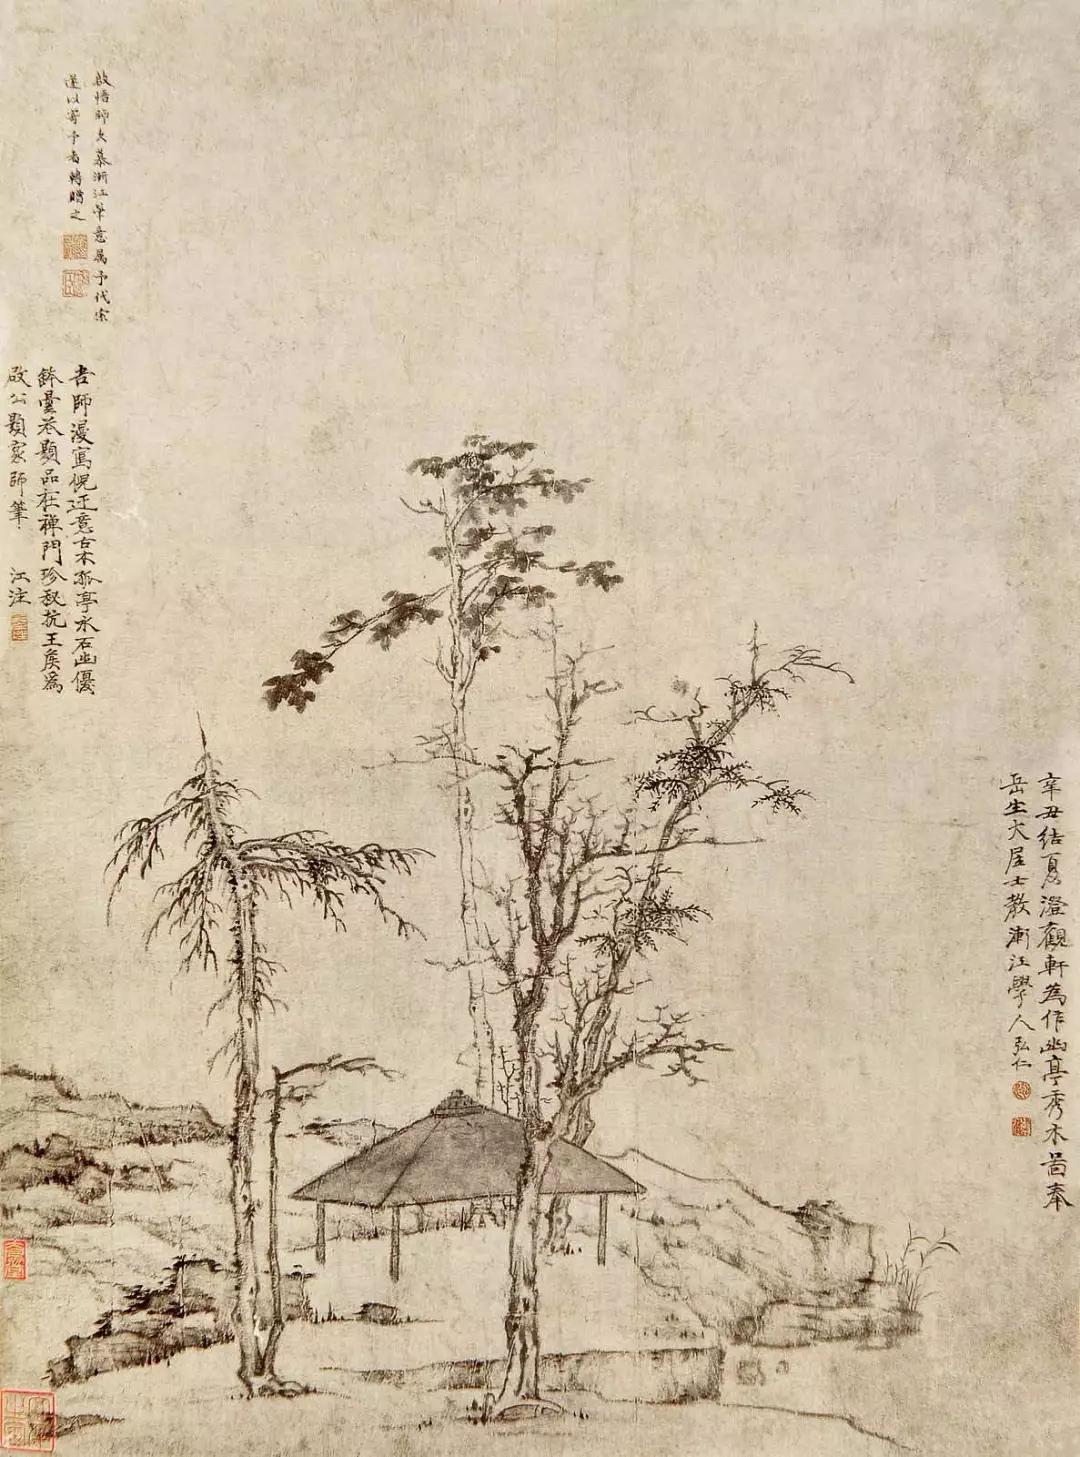 辛丑結夏澄觀軒為作幽亭秀木啚奉
岳生大居士教漸江學人弘仁
啟悟師久慕漸江筆意属予代索
遂以寄予者轉贈之
吾師漫寫倪迂意古木孤亭水石幽優
鉢曇題品在禅門珍秘抗王侯為
啟公題家師筆 江注